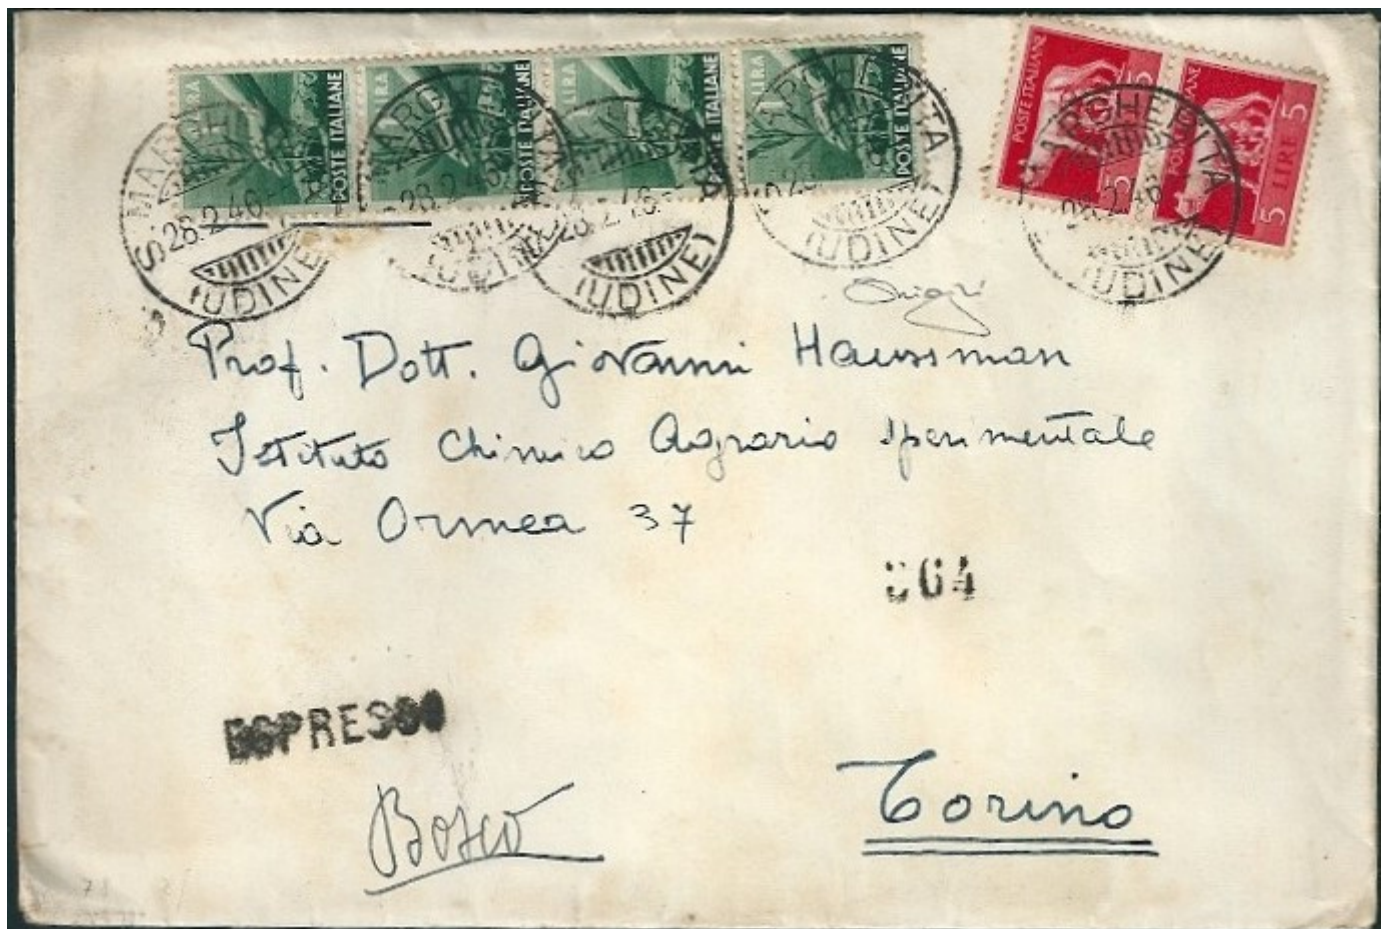 1 LIRA POSTE ITALIANE
1 LIRA POSTE ITALIANE
1 LIRA POSTE ITALIANE
1 LIRA POSTE ITALIANE
POSTE ITALIANE LIRE 5
POSTE ITALIANE LIRE 5
S. MARGHERITA
28.2.46
(UDINE)
S. MARGHERITA
28.2.46
(UDINE)
S. MARGHERITA
28.2.46
(UDINE)
S. MARGHERITA
(UDINE)
S. MARGHERITA
28.2.46
(UDINE)
Prof. Dott. Giovanni Haussman
Istituto Chimico Agrario sperimentale
Via Ormea 37
64
ESPRESSO
Torino
Bosco